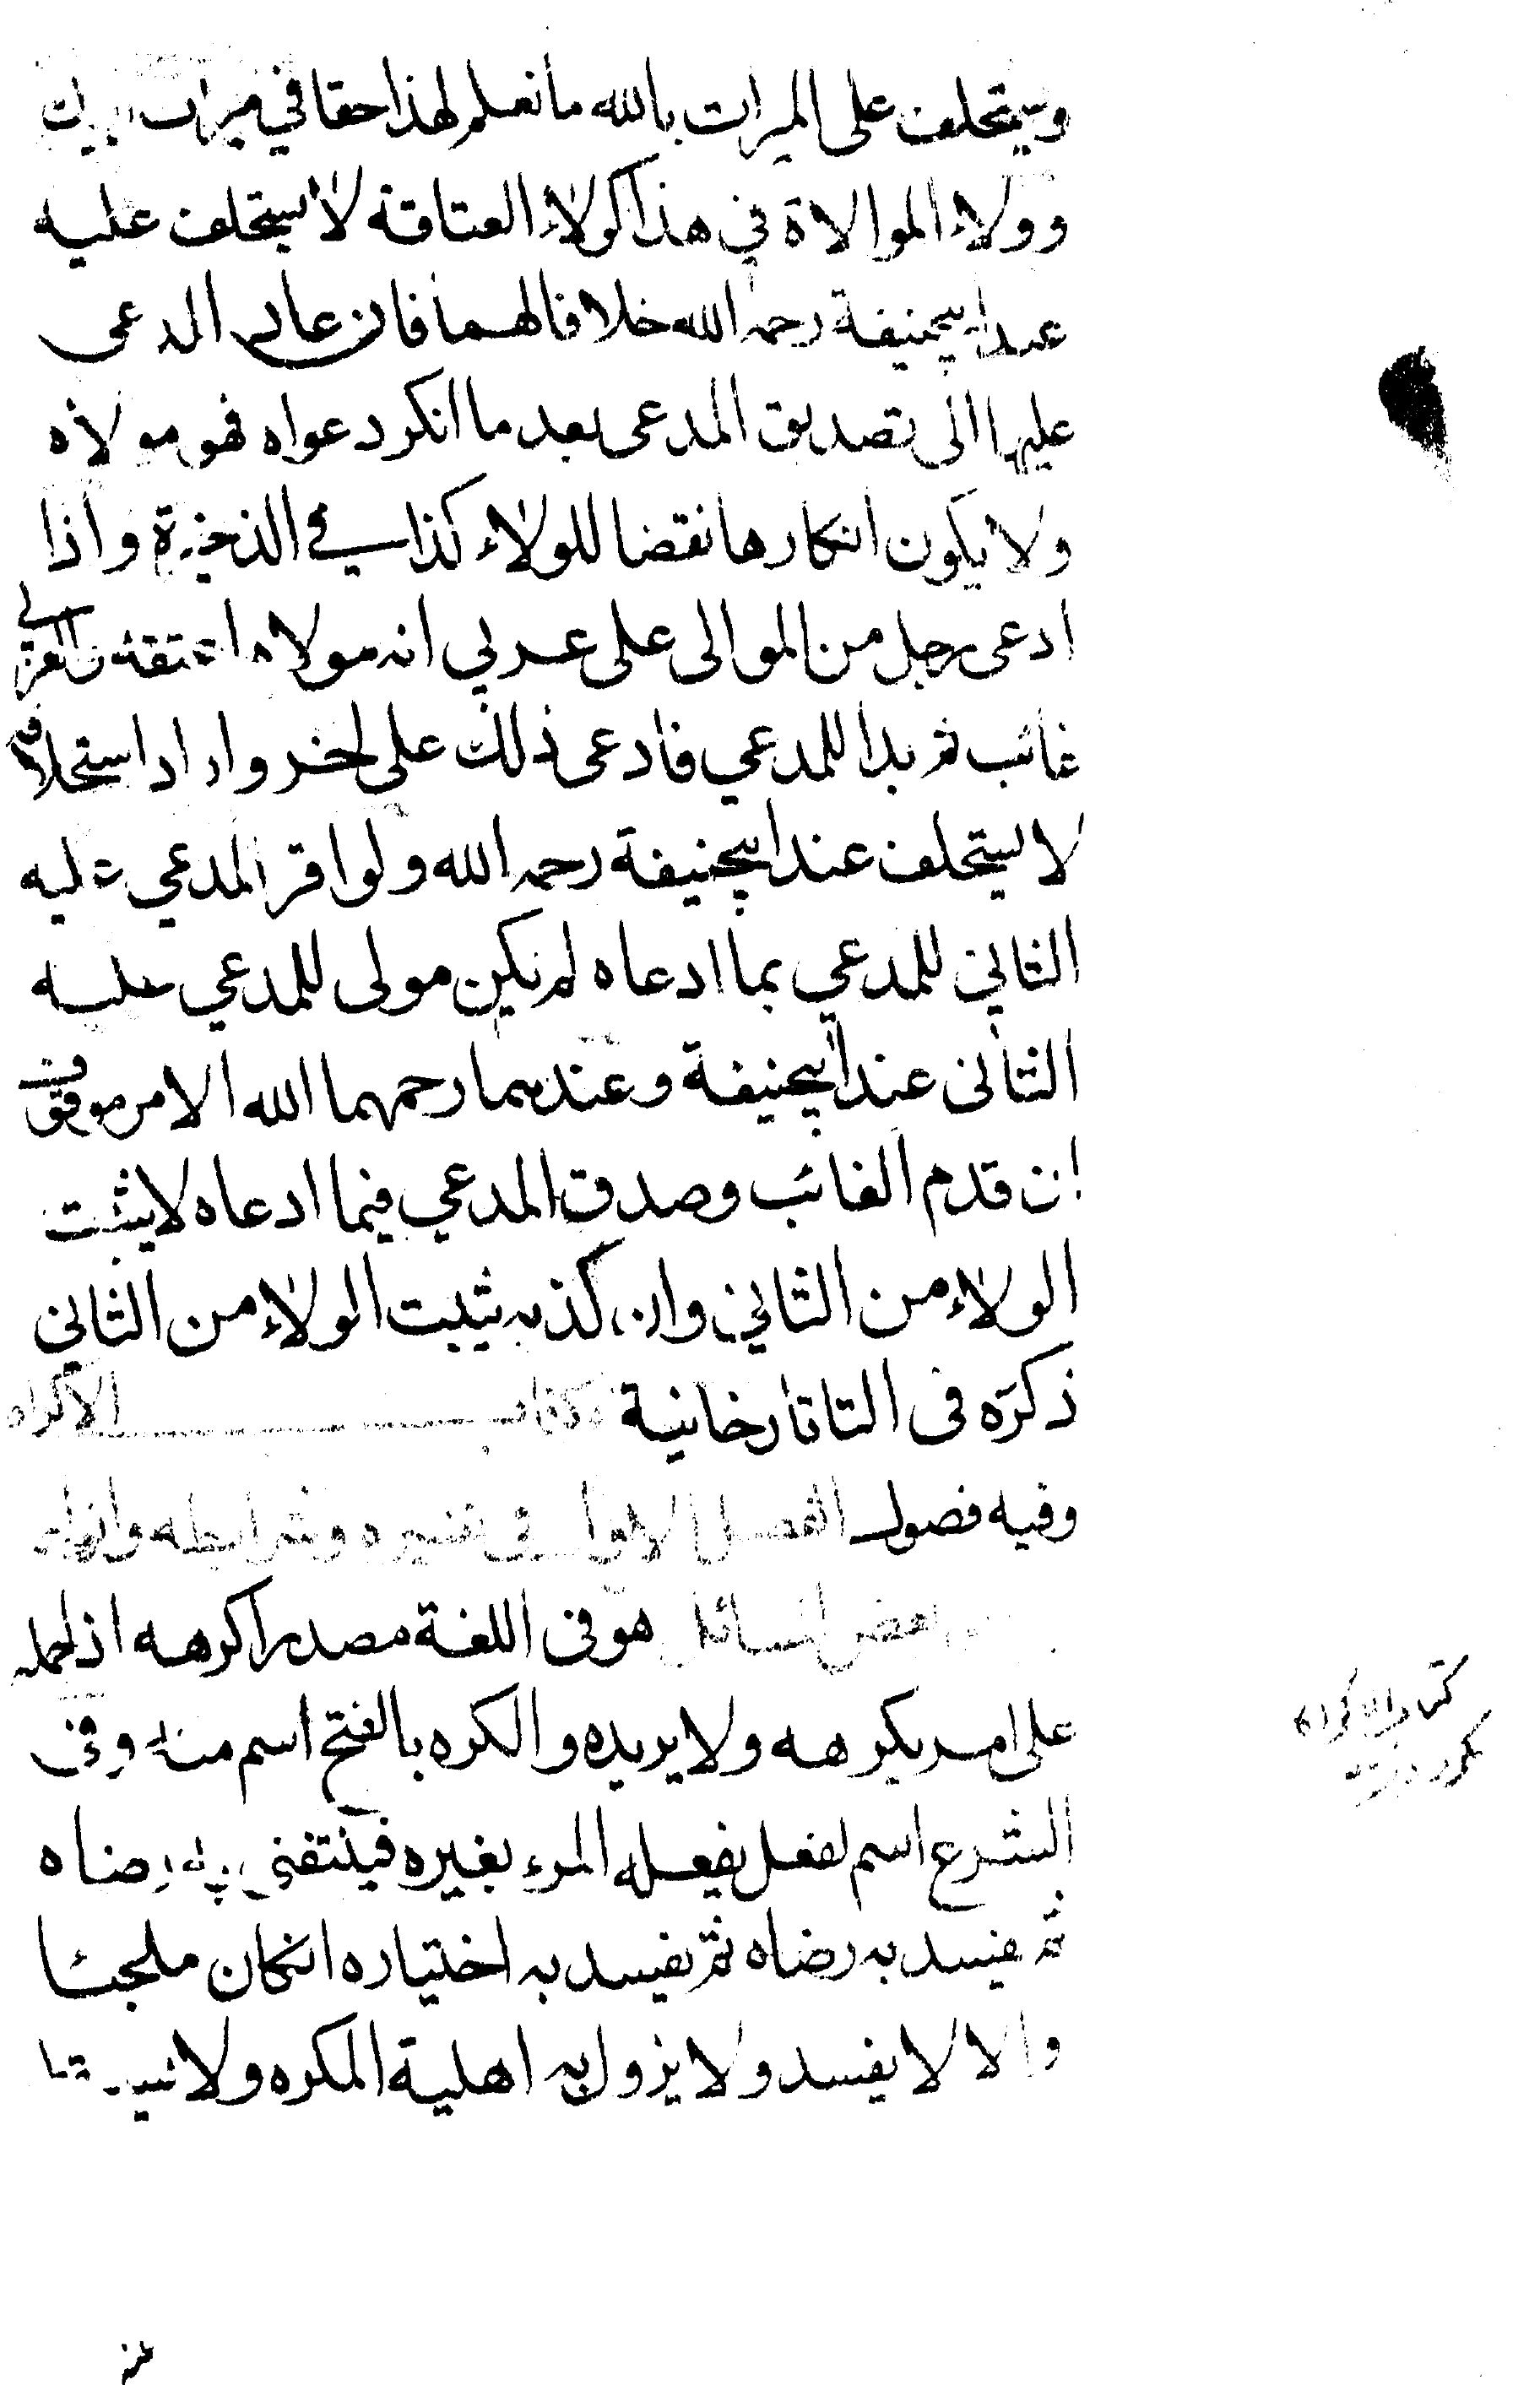 ويستحلف على الميراث بالله ما نعلم لهذا حقا في ميراث ابيك
وولاء الموالاة في هذا كولاء العتاقة لا يستحلف عليه
عند ابيحنيفة رحمه الله خلافا لهما فان عاد المدعى
عليها الى تصديق المدعى بعد ما انكر دعواه فهو مولاه
ولا يكون انكارها نقضا للولاء كذا في الذخيرة واذا
ادعى رجل من الموالى على عربي انه مولاه اعتقه والعربي
غائب ثم بدا للمدعي فادعى ذلك على اخر واراد استحلافه
لا يستحلف عند ابيحنيفة رحمه الله ولو اقر المدعي عليه
الثاني للمدعي بما ادعاه لم يكن مولى للمدعي عليه
الثاني عند ابيحنيفة وعندهما رحمهما الله الامر موقوف
ان قدم الغائب وصدق المدعي فيما ادعاه لا يثبت
الولاء من الثاني وان كذبه يثبت الولاء من الثاني
ذكره في التاتارخانية كتاب الاكراه
وفيه فصول الفصل الاول في تفسيره وشرائطه وانواعه
بعض المسائل هو في اللغة مصدر اكرهه اذا حمله
على امر يكرهه ولا يريده والكره بالفتح اسم منه وفي
الشرع اسم لفعل يفعله المرء بغيره فينتفى به رضاه
ثم يفسد به رضاه ثم يفسد به اختياره ان كان ملجئا
والا لا يفسد ولا يزول به اهلية المكره ولا
كتاب الاكراه